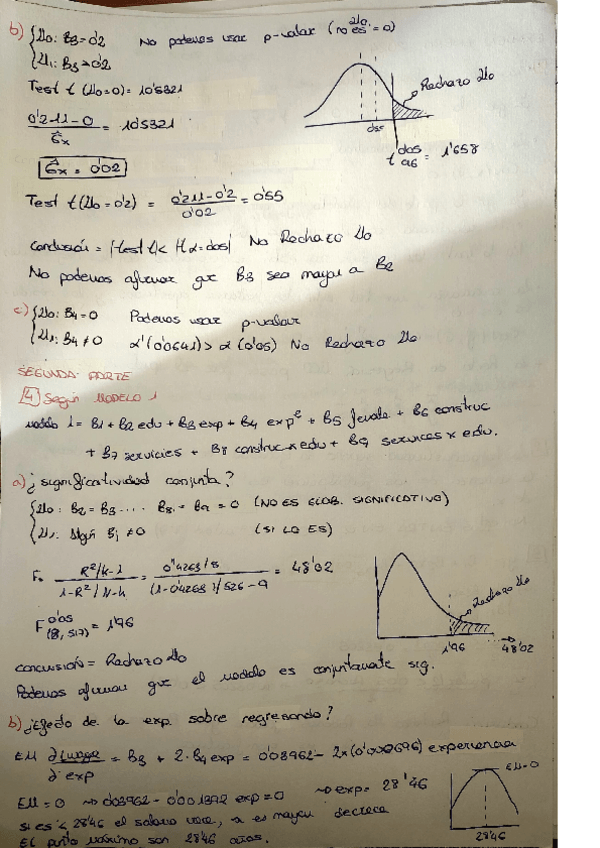 b) { H0: B3=0'2 No podemos usar p-valor (no es H0 = 0)
{ H1: B3>0'2
Test t (H0=0) = 10'5321
0'211-0 / σ̂x = 10'5321
Rechazo H0
σ̂x = 0'02
t = 1'658
Test t(H0=0'2) = 0'211-0'2 / 0'02 = 0'55
Conclusión = |test t| < No Rechazo H0
No podemos afirmar que B3 sea mayor a B2
c) { H0: B4=0 Podemos usar p-valor
{ H1: B4≠0 α'(0'0641) > α (0'05) No Rechazo H0
SEGUNDA PARTE
4 Según MODELO 1
Modelo 1= B1 + B2 edu + B3 exp + B4 exp² + B5 female + B6 construc
+ B7 services + B8 construc x edu + B9 services x edu.
a) ¿significatividad conjunta?
{ H0: B2 = B3 .... B8 = B9 = 0 (NO ES GLOB. SIGNIFICATIVO)
{ H1: Algún Bj ≠0 (SI LO ES)
F = R²/k-1 / 1-R²/N-k = 0'4263/8 / (1-0'4263)/526-9 = 48'02
Rechazo H0
F 0'05 (8, 517) = 1'96
1'96 48'02
Conclusión = Rechazo H0
Podemos afirmar que el modelo es conjuntamente sig.
b) ¿Efecto de la exp sobre regresando?
EM ∂lwage / ∂exp = B3 + 2·B4 exp = 0'03962 - 2x(0'000696) experiencia
EM=0
EM=0 → 0'03962 - 0'001392 exp=0 → exp= 28'46
si es < 28'46 el salario crece, si es mayor decrece
28'46
El punto máximo son 28'46 años.